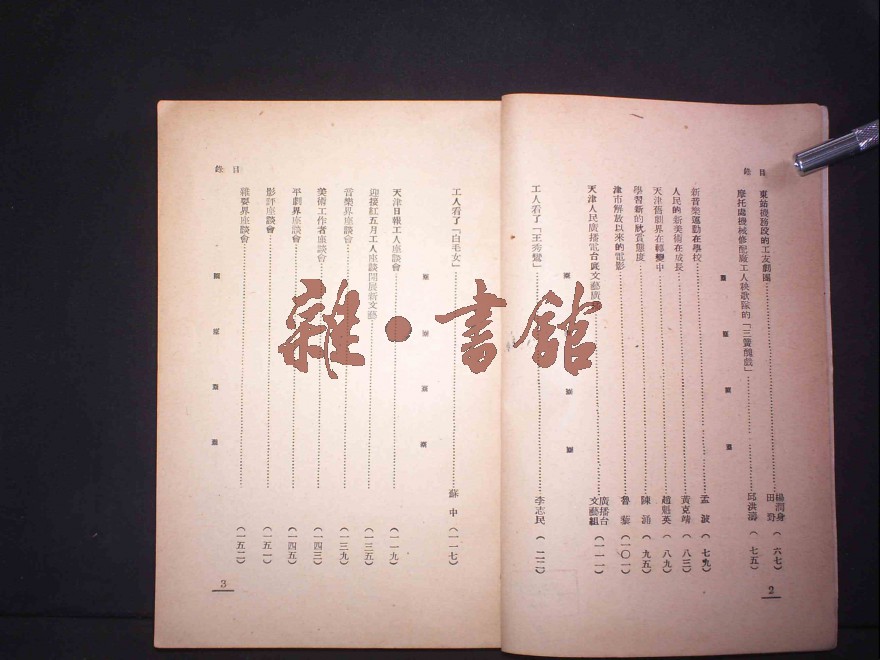 目錄
東站機務段的工友劇團 楊潤身 田野 (六七)
摩托處機械修配廠工人秧歌隊的「三簧醜戲」 邱洪濤 (七五)
新音樂運動在學校 孟波 (七九)
人民的新美術在成長 黃克靖 (八三)
天津舊劇界在轉變中 趙魁英 (八九)
學習新的欣賞態度 陳涌 (九五)
津市解放以來的電影 魯藜 (一〇一)
天津人民廣播電台底文藝廣 廣播台文藝組 (一一一)
工人看了「王秀鸞」 李志民 (一二二)
2
目錄
工人看了「白毛女」 蘇中 (一一七)
天津日報工人座談會 (一一九)
迎接紅五月工人座談開展新文藝 (一三五)
音樂界座談會 (一三九)
美術工作者座談會 (一四三)
平劇界座談會 (一四五)
影評座談會 (一五一)
雜耍界座談會 (一五二)
3
雜·書館